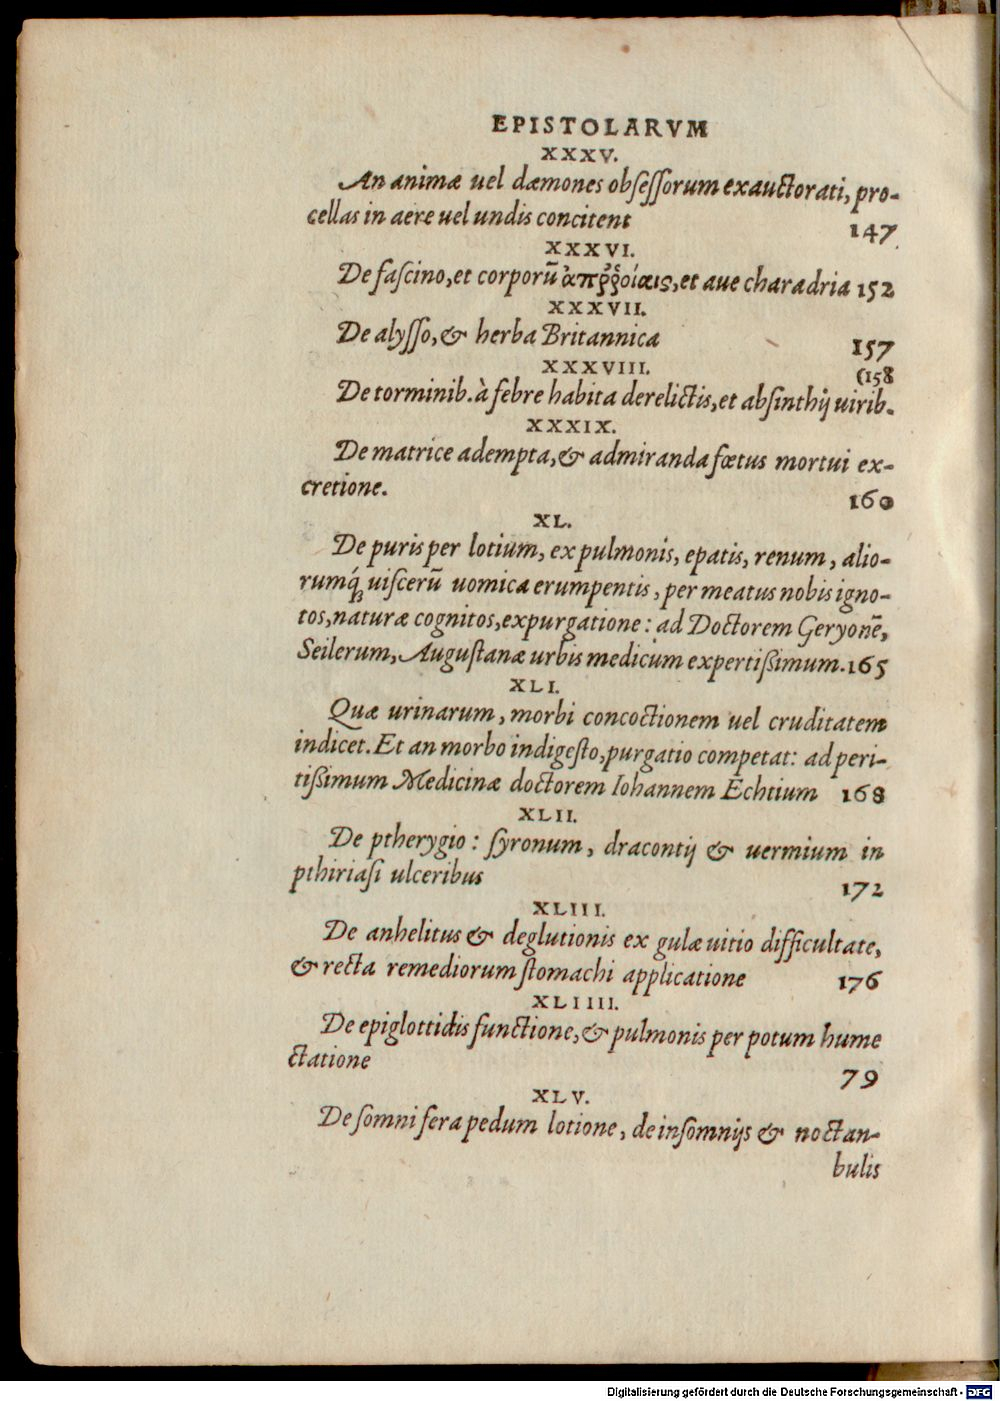 EPISTOLARVM
XXXV.
An animæ uel dæmones obſeſſorum exauctorati, pro-
cellas in aere uel undis concitent 147
XXXVI.
De faſcino, et corporũ et aue charadria 152
XXXVII.
De alyſſo, & herba Britannica 157
XXXVIII. (158
De torminib. à febre habita derelictis, et abſinthij uirib.
XXXIX.
De matrice adempta, & admiranda fœtus mortui ex-
cretione. 160
XL.
De puris per lotium, ex pulmonis, epatis, renum, alio-
rumq́ꝫ uiſcerũ uomica erumpentis, per meatus nobis igno-
tos, naturæ cognitos, expurgatione: ad Doctorem Geryonẽ,
Seilerum, Auguſtanæ urbis medicum expertißimum. 165
XLI.
Quæ urinarum, morbi concoctionem uel cruditatem
indicet. Et an morbo indigeſto, purgatio competat: ad peri-
tißimum Medicinæ doctorem Iohannem Echtium 168
XLII.
De ptherygio: ſyronum, dracontij & uermium in
pthiriaſi ulceribus 172
XLIII.
De anhelitus & deglutionis ex gulæ uitio difficultate,
& recta remediorum ſtomachi applicatione 176
XLIIII.
De epiglottidis functione, & pulmonis per potum hume
ctatione 79
XLV.
De ſomnifera pedum lotione, de inſomnijs & noctan-
bulis
Digitalisierung gefördert durch die Deutsche Forschungsgemeinschaft - DFG